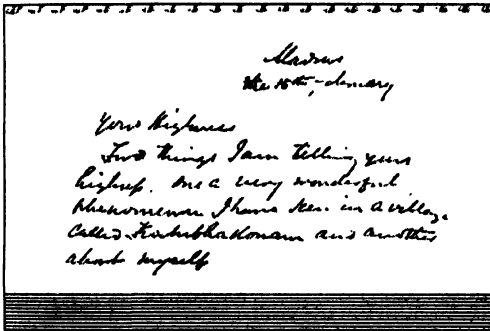 Madras
the 15th, January
Your Highness
Two things I am telling your
highness. One a very wonderful
phenomenon I have seen in a village
called and another
about myself